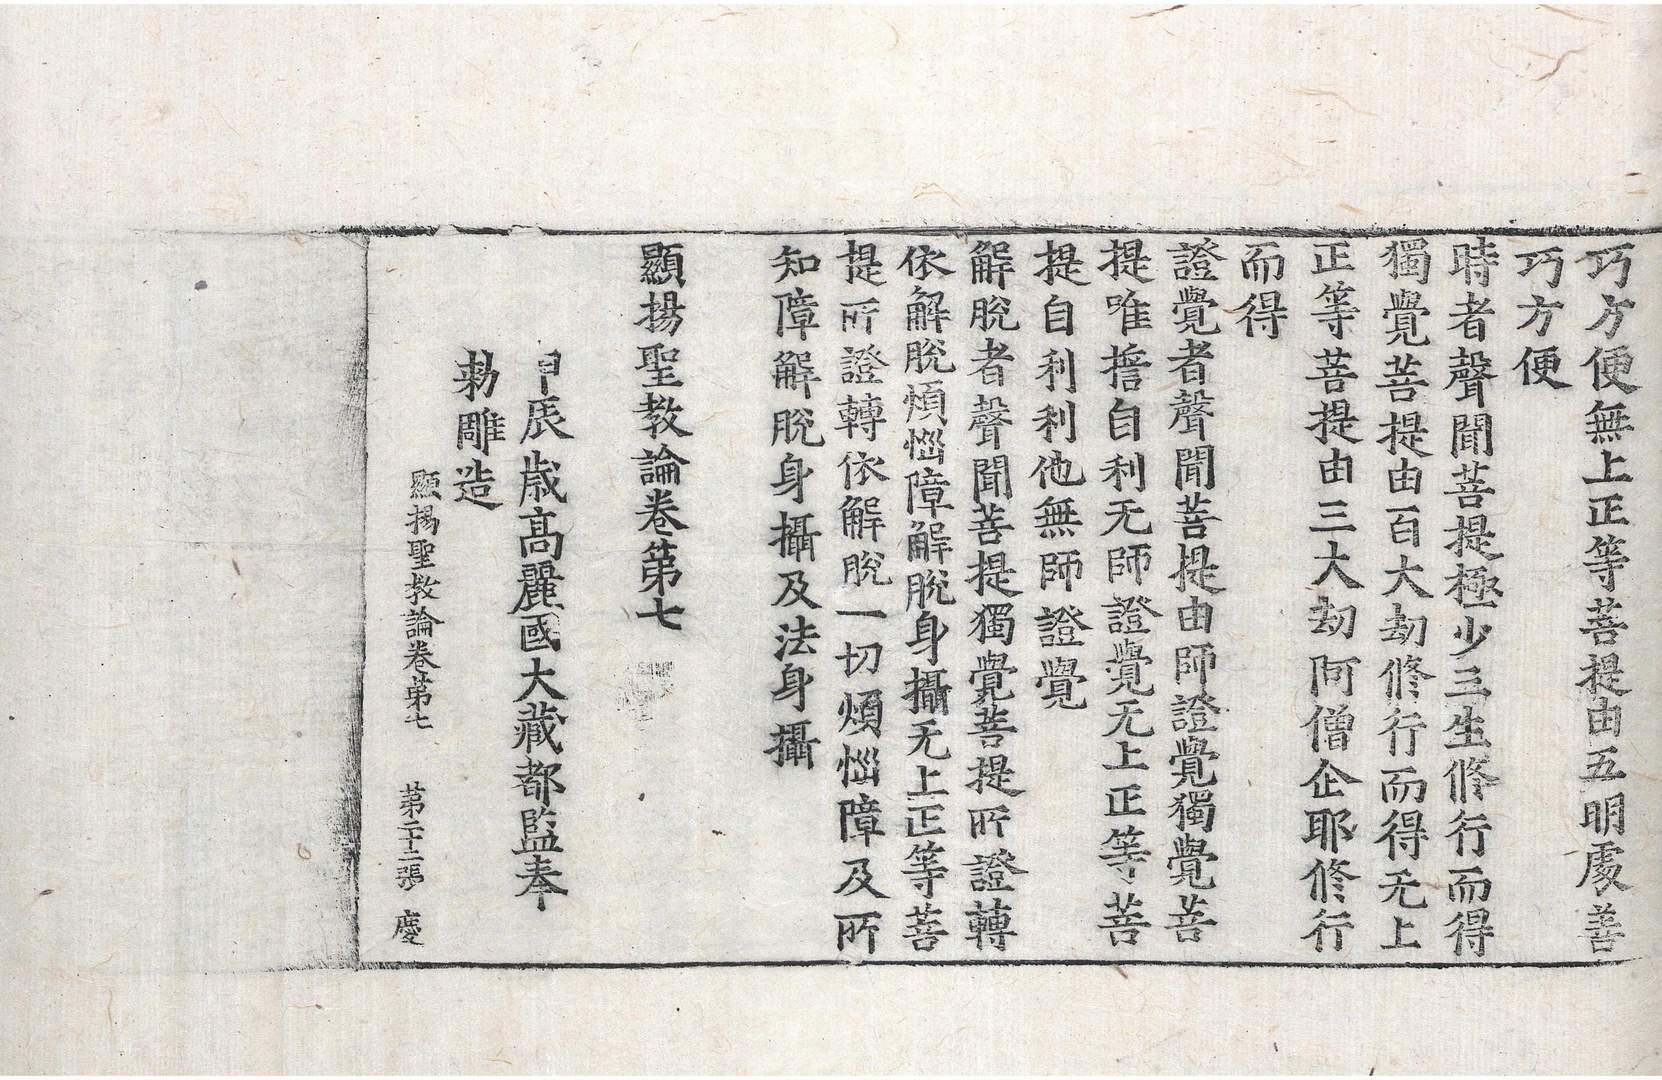 巧方便無上正等菩提由五明處善
巧方便
時者聲聞菩提極少三生修行而得
獨覺菩提由百大劫修行而得无上
正等菩提由三大劫阿僧企耶修行
而得
證覺者聲聞菩提由師證覺獨覺菩
提唯擔自利无師證覺无上正等菩
提自利利他無師證覺
解脫者聲聞菩提獨覺菩提所證轉
依解脫煩惱障解脫身攝无上正等菩
提所證轉依解脫一切煩惱障及所
知障解脫身攝及法身攝
顯揚聖教論卷第七
甲辰歲高麗國大藏都監奉
勑雕造
顯揚聖教論卷第七 第二十二張 慶